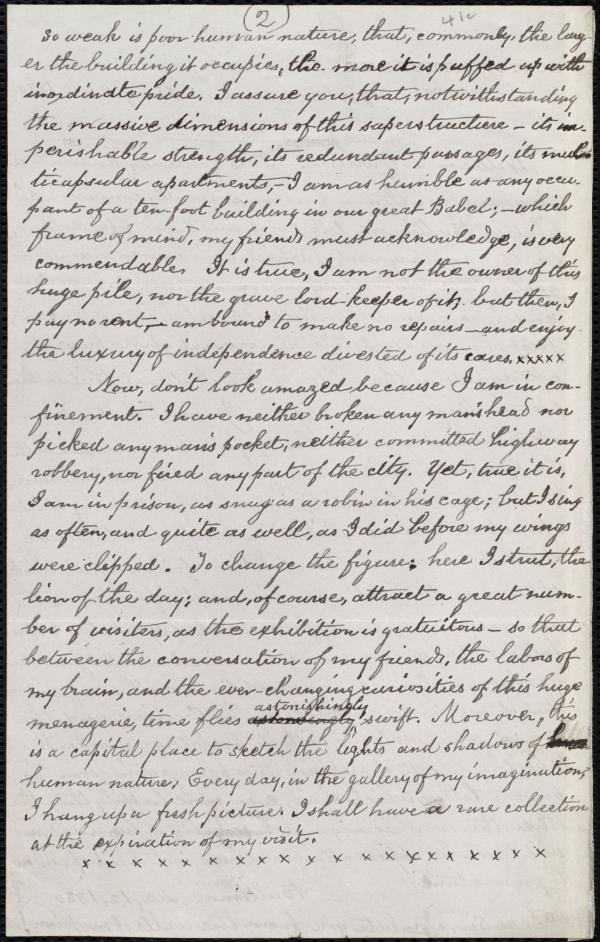 (2)
41c
so weak is poor human nature, that, commonly, the larg-
er the building it occupies, the more it is puffed up with
inordinate pride. I assure you, that, notwithstanding
the massive dimensions of this superstructure – its im-
perishable strength, its redundant passages, its mul-
ticapsular apartments, – I am as humble as any occu-
pant of a ten-foot building in our great Babel; – which
frame of mind, my friends must acknowledge, is very
commendable. It is true, I am not the owner of this
huge pile, nor the grave lord-keeper of it; but then, I
pay no rent, – am bound to make no repairs – and enjoy
the luxury of independence divested of its cares. x x x x x
Now, don't look amazed because I am in con-
finement. I have neither broken any man's head nor
picked any man's pocket, neither committed highway
robbery, nor fired any part of the city. Yet, true it is,
I am in prison, as snug as a robin in his cage; but I sing
as often, and quite as well, as I did before my wings
were clipped. To change the figure: here I strut, the
lion of the day; and, of course, attract a great num-
ber of visiters, as the exhibition is gratuitous – so that
between the conversation of my friends, the labors of
my brain, and the ever-changing curiosities of this huge
astonishingly
menagerie, time flies swift. Moreover, this
is a capital place to sketch the lights and shadows of
human nature. Every day, in the gallery of my imagination,
I hang up a fresh picture. I shall have a rare collection
at the expiration of my visit.
x x x x x x x x x x x x x x x x x x x x